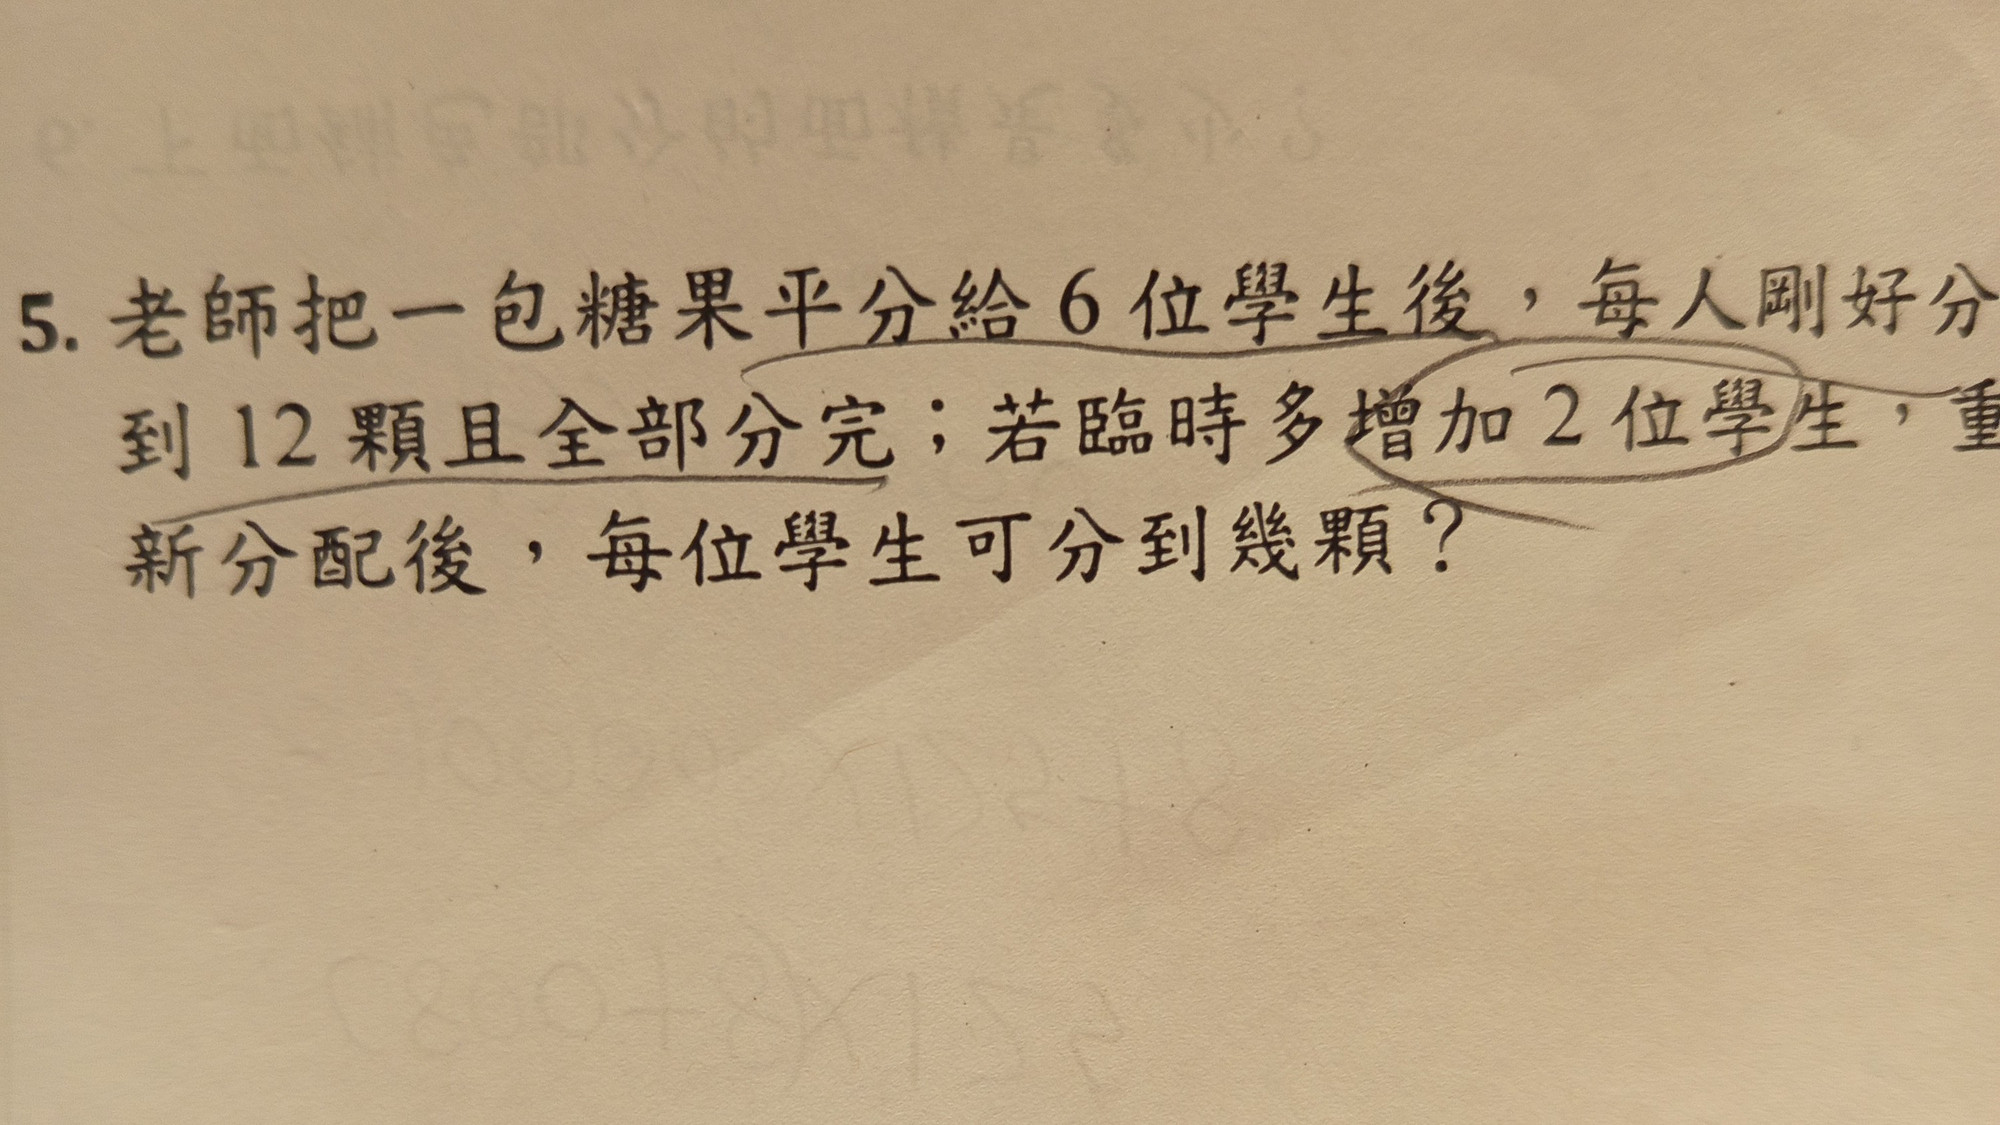 5. 老師把一包糖果平分給 6 位學生後，每人剛好分
到 12 顆且全部分完；若臨時多增加 2 位學生，重
新分配後，每位學生可分到幾顆？